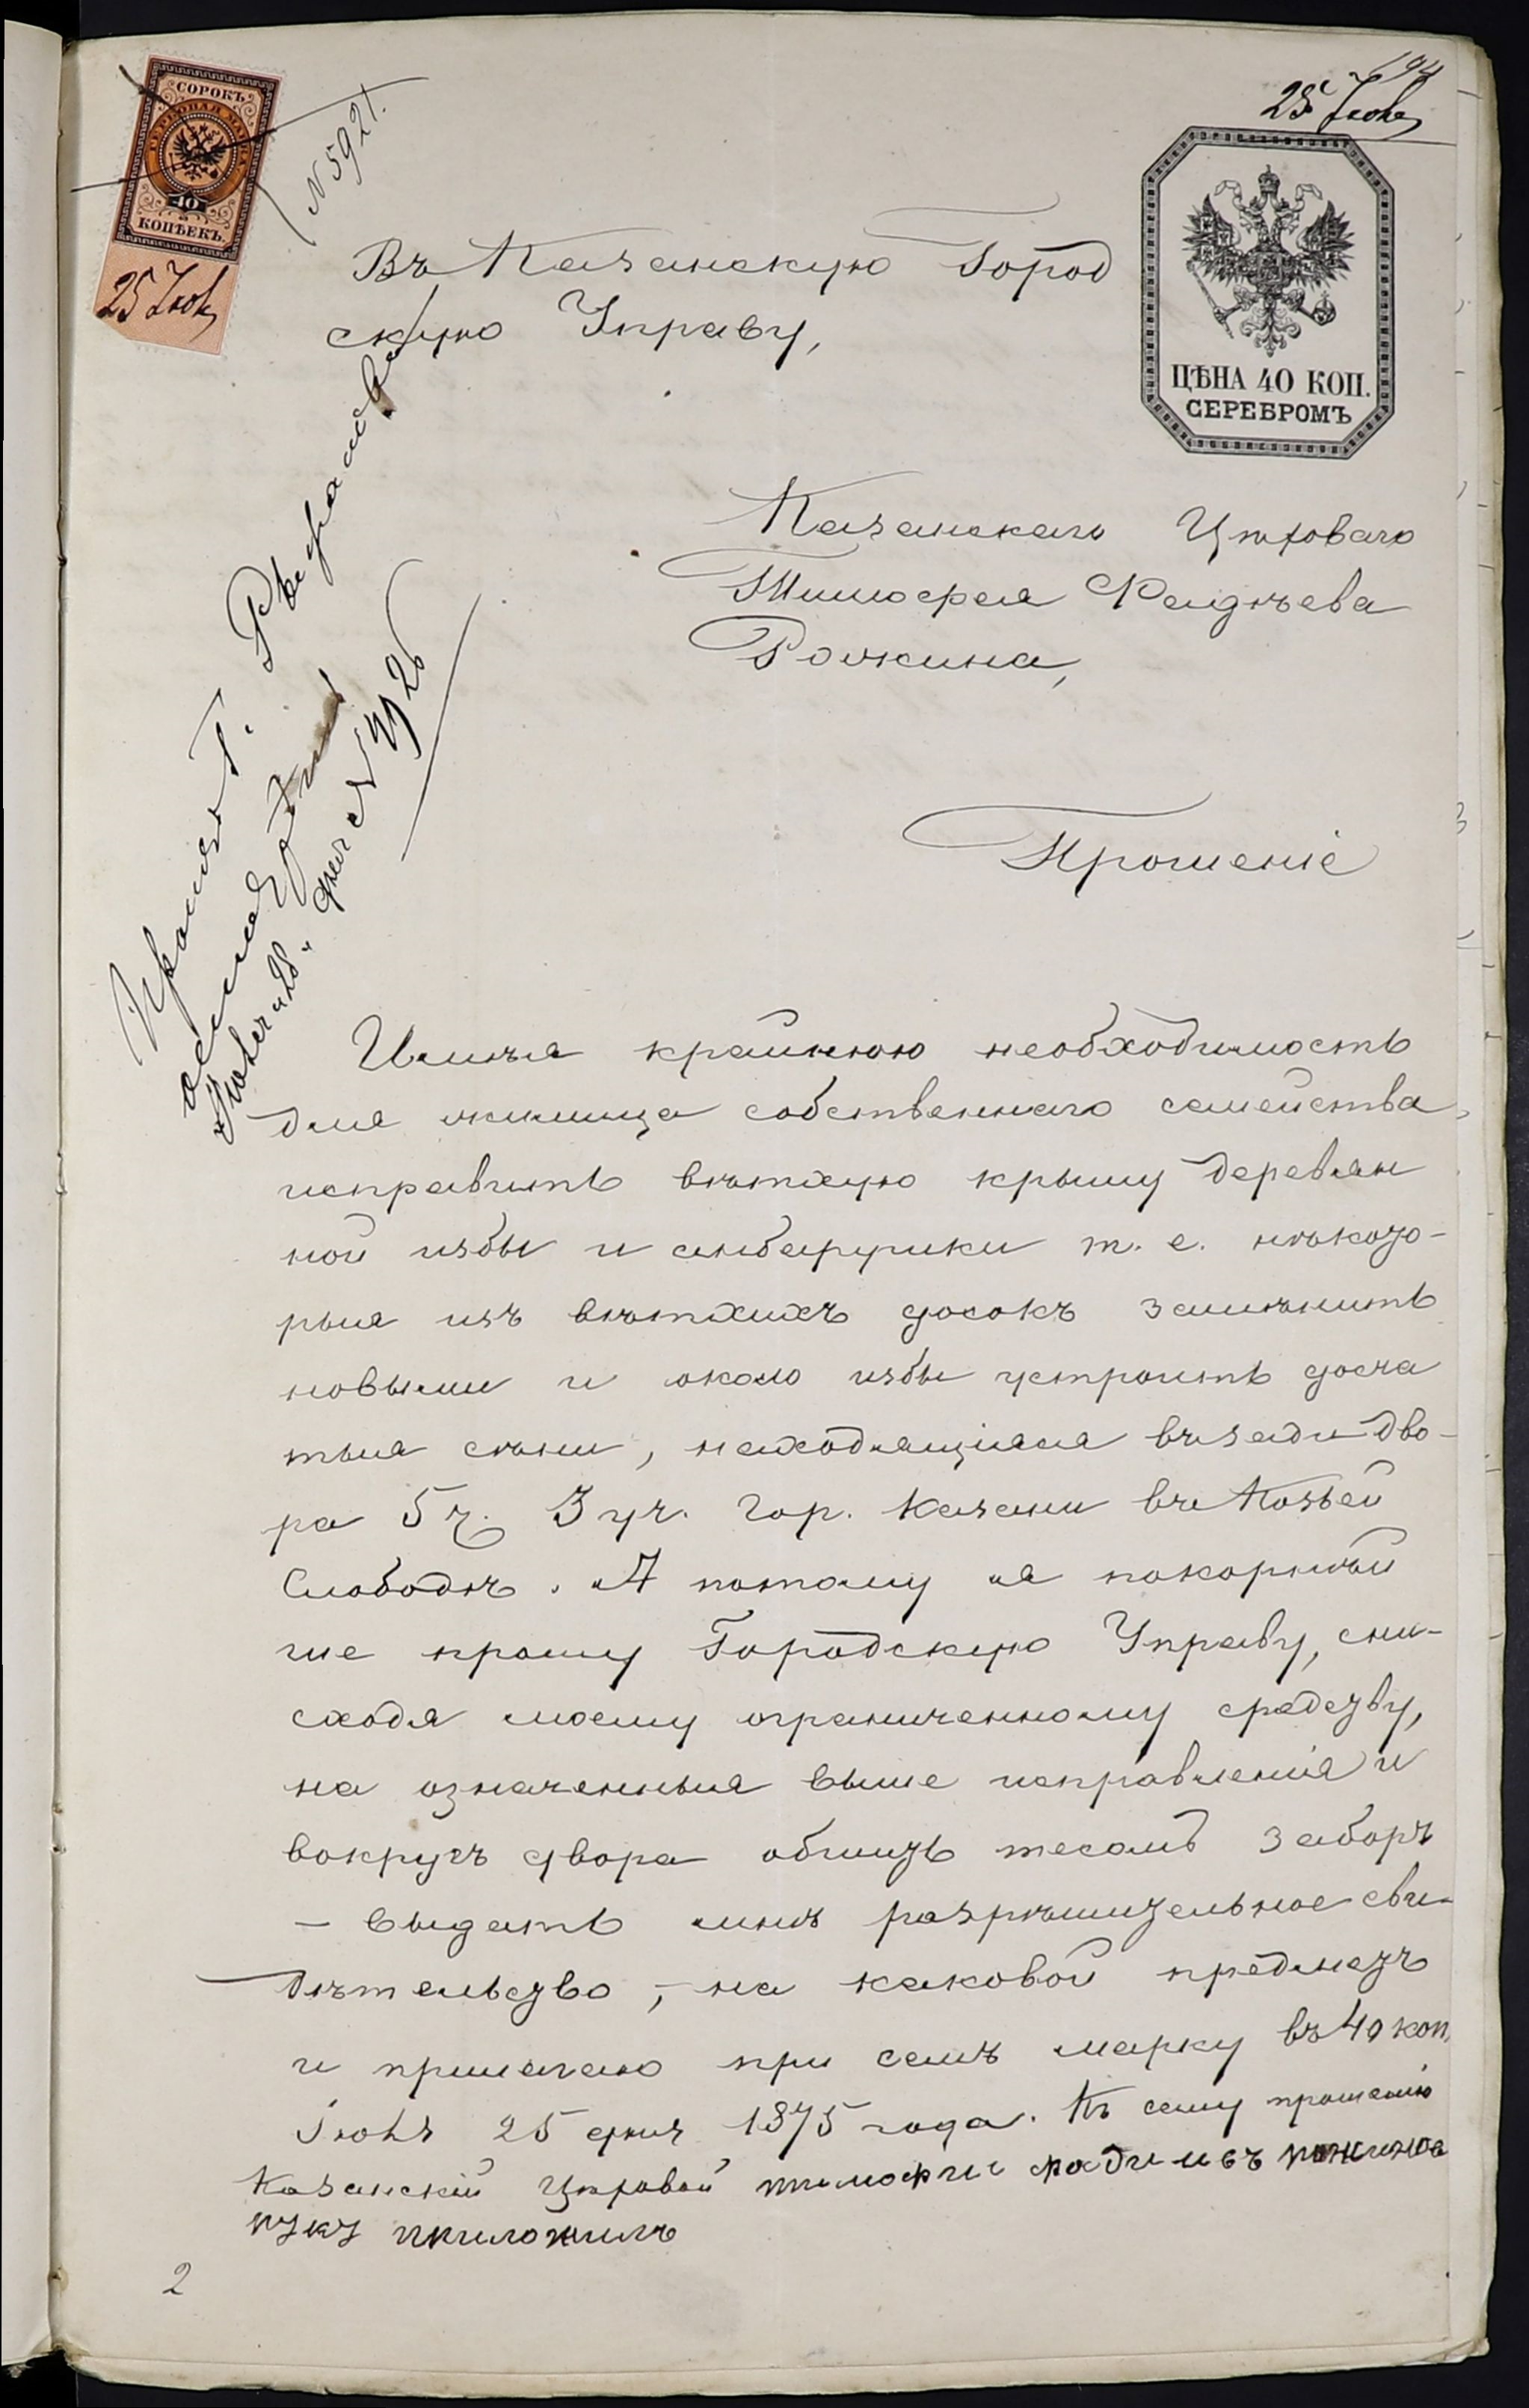 194
25 Іюня
СОРОКЪ
ГЕРБОВАЯ МАРКА
40
КОПѢЕКЪ.
25 Іюн
N 5921.
Въ Казанскую Город
скую Управу,
ЦѢНА 40 КОП.
СЕРЕБРОМЪ
Казанскаго Цѣховаго
Тимофея Фадѣева
Рожкина,
Прошеніе
Просить Г.
Іюня 28" дня N 4926
Имѣя крайнюю необходимость
для жилища собственнаго семейства,
исправить вѣтхую крышу деревян
ной избы и анбарушки т. е. нѣкото-
рыя изъ вѣтхихъ досокъ замѣнить
новыми и около избы устроить доща
тыя сѣни, находящіяся въ зади дво-
ра 5 ч. 3 уч. гор. Казани въ Козьей
Слободѣ. А потому я покорнѣй
ше прошу Городскую Управу, сни-
сходя моему ограниченному средству,
на означенныя выше исправленія и
вокругъ двора обшить тесомъ заборъ
– выдать мнѣ разрѣшительное сви-
дѣтельство, – на каковой предметъ
и прилагаю при семъ марку въ 40 коп.
Іюня 25 дня 1875 года. Къ сему прошенію
Казанскій Цѣховой тимофги фадиивъ рожкинов
руку приложилъ
2